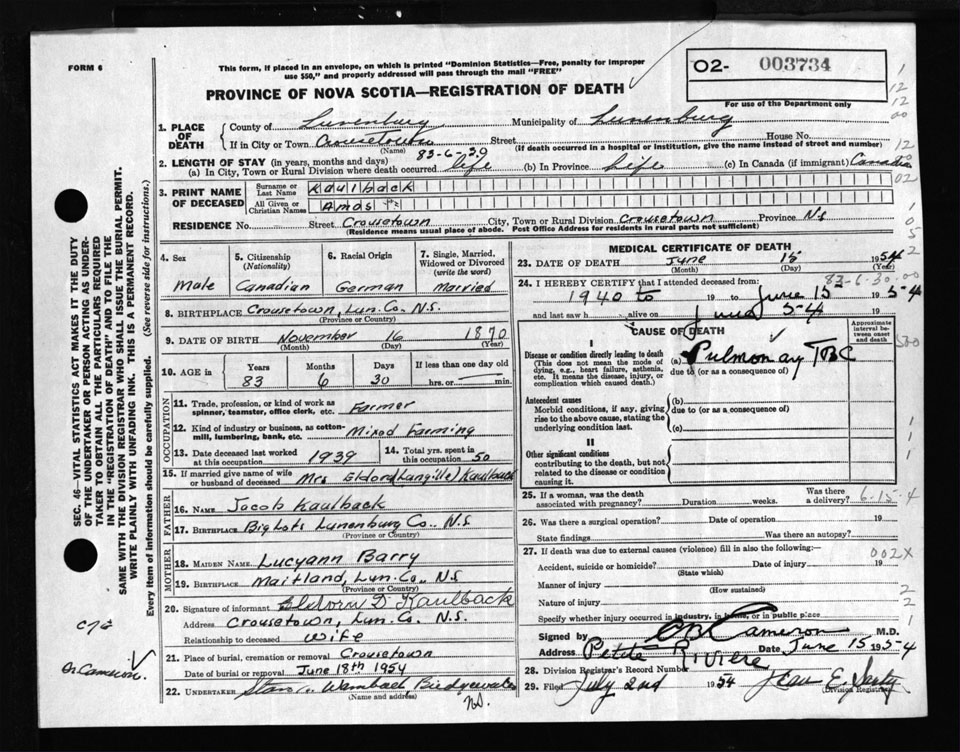 FORM 6
This form, if placed in an envelope, on which is printed "Dominion Statistics—Free, penalty for improper
use $50," and properly addressed will pass through the mail "FREE"
PROVINCE OF NOVA SCOTIA—REGISTRATION OF DEATH
02- 003734
For use of the Department only
1. PLACE OF DEATH
County of Lunenburg Municipality of Lunenburg
If in City or Town Crousetown Street House No.
(Name) (If death occurred in a hospital or institution, give the name instead of street and number)
83-6-29
2. LENGTH OF STAY (in years, months and days)
(a) In City, Town or Rural Division where death occurred life (b) In Province Life (c) In Canada (if immigrant) Canadian
3. PRINT NAME OF DECEASED
Surname or Last Name Kaulback
All Given or Christian Names Amos
RESIDENCE No. Street Crousetown City, Town or Rural Division Crousetown Province N.S
(Residence means usual place of abode. Post Office Address for residents in rural parts not sufficient)
4. Sex Male
5. Citizenship (Nationality) Canadian
6. Racial Origin German
7. Single, Married, Widowed or Divorced (write the word) Married
8. BIRTHPLACE Crousetown, Lun. Co. N.S.
(Province or Country)
9. DATE OF BIRTH November 16 1870
(Month) (Day) (Year)
10. AGE Years 83 Months 6 Days 30 If less than one day old hrs. or min.
OCCUPATION
11. Trade, profession, or kind of work as spinner, teamster, office clerk, etc. Farmer
12. Kind of industry or business, as cotton-mill, lumbering, bank, etc. Mixed Farming
13. Date deceased last worked at this occupation 1939
14. Total yrs. spent in this occupation 50
15. If married give name of wife or husband of deceased Mrs (Langille) Kaulback
FATHER
16. Name Jacob Kaulback
17. Birthplace Big Lots Lunenburg Co., N.S
(Province or Country)
MOTHER
18. MAIDEN NAME Lucyann Barry
19. BIRTHPLACE Maitland, Lun. Co., N.S
(Province or Country)
20. Signature of informant D Kaulback
Address Crousetown, Lun. Co. N.S.
Relationship to deceased wife
21. Place of burial, cremation or removal Crousetown
Date of burial or removal June 18th 1954
22. UNDERTAKER Wambach, Bridgewater
(Name and address) N.S.
MEDICAL CERTIFICATE OF DEATH
23. DATE OF DEATH June 15 1954
(Month) (Day) (Year)
83-6-30
24. I HEREBY CERTIFY that I attended deceased from:
1940 to 19 to June 15 1954
and last saw h alive on June 54
CAUSE OF DEATH
Approximate interval between onset and death
I
Disease or condition directly leading to death
(This does not mean the mode of dying, e.g., heart failure, asthenia, etc. It means the disease, injury, or complication which caused death.)
(a) Pulmonary TBC
due to (or as a consequence of)
Antecedent causes
Morbid conditions, if any, giving rise to the above cause, stating the underlying condition last.
(b)
due to (or as a consequence of)
(c)
II
Other significant conditions
contributing to the death, but not related to the disease or condition causing it.
25. If a woman, was the death associated with pregnancy? Duration weeks. Was there a delivery? 6-15-4
26. Was there a surgical operation? Date of operation 19
State findings Was there an autopsy?
27. If death was due to external causes (violence) fill in also the following:—
002X
Accident, suicide or homicide? Date of injury 19
(State which)
Manner of injury
(How sustained)
Nature of injury
Specify whether injury occurred in industry, in home, or in public place
Signed by Cameron M.D.
Address Petite Riviere Date June 15 1954
28. Division Registrar's Record Number
29. Filed July 2nd 1954 Jean E.
(Division Registrar)
SEC. 46—VITAL STATISTICS ACT MAKES IT THE DUTY
OF THE UNDERTAKER OR PERSON ACTING AS UNDER-
TAKER TO OBTAIN ALL THE PARTICULARS REQUIRED
IN THE "REGISTRATION OF DEATH" AND TO FILE THE
SAME WITH THE DIVISION REGISTRAR WHO SHALL ISSUE THE BURIAL PERMIT.
WRITE PLAINLY WITH UNFADING INK. THIS IS A PERMANENT RECORD.
Every item of information should be carefully supplied. (See reverse side for instructions.)
Dr. Cameron.